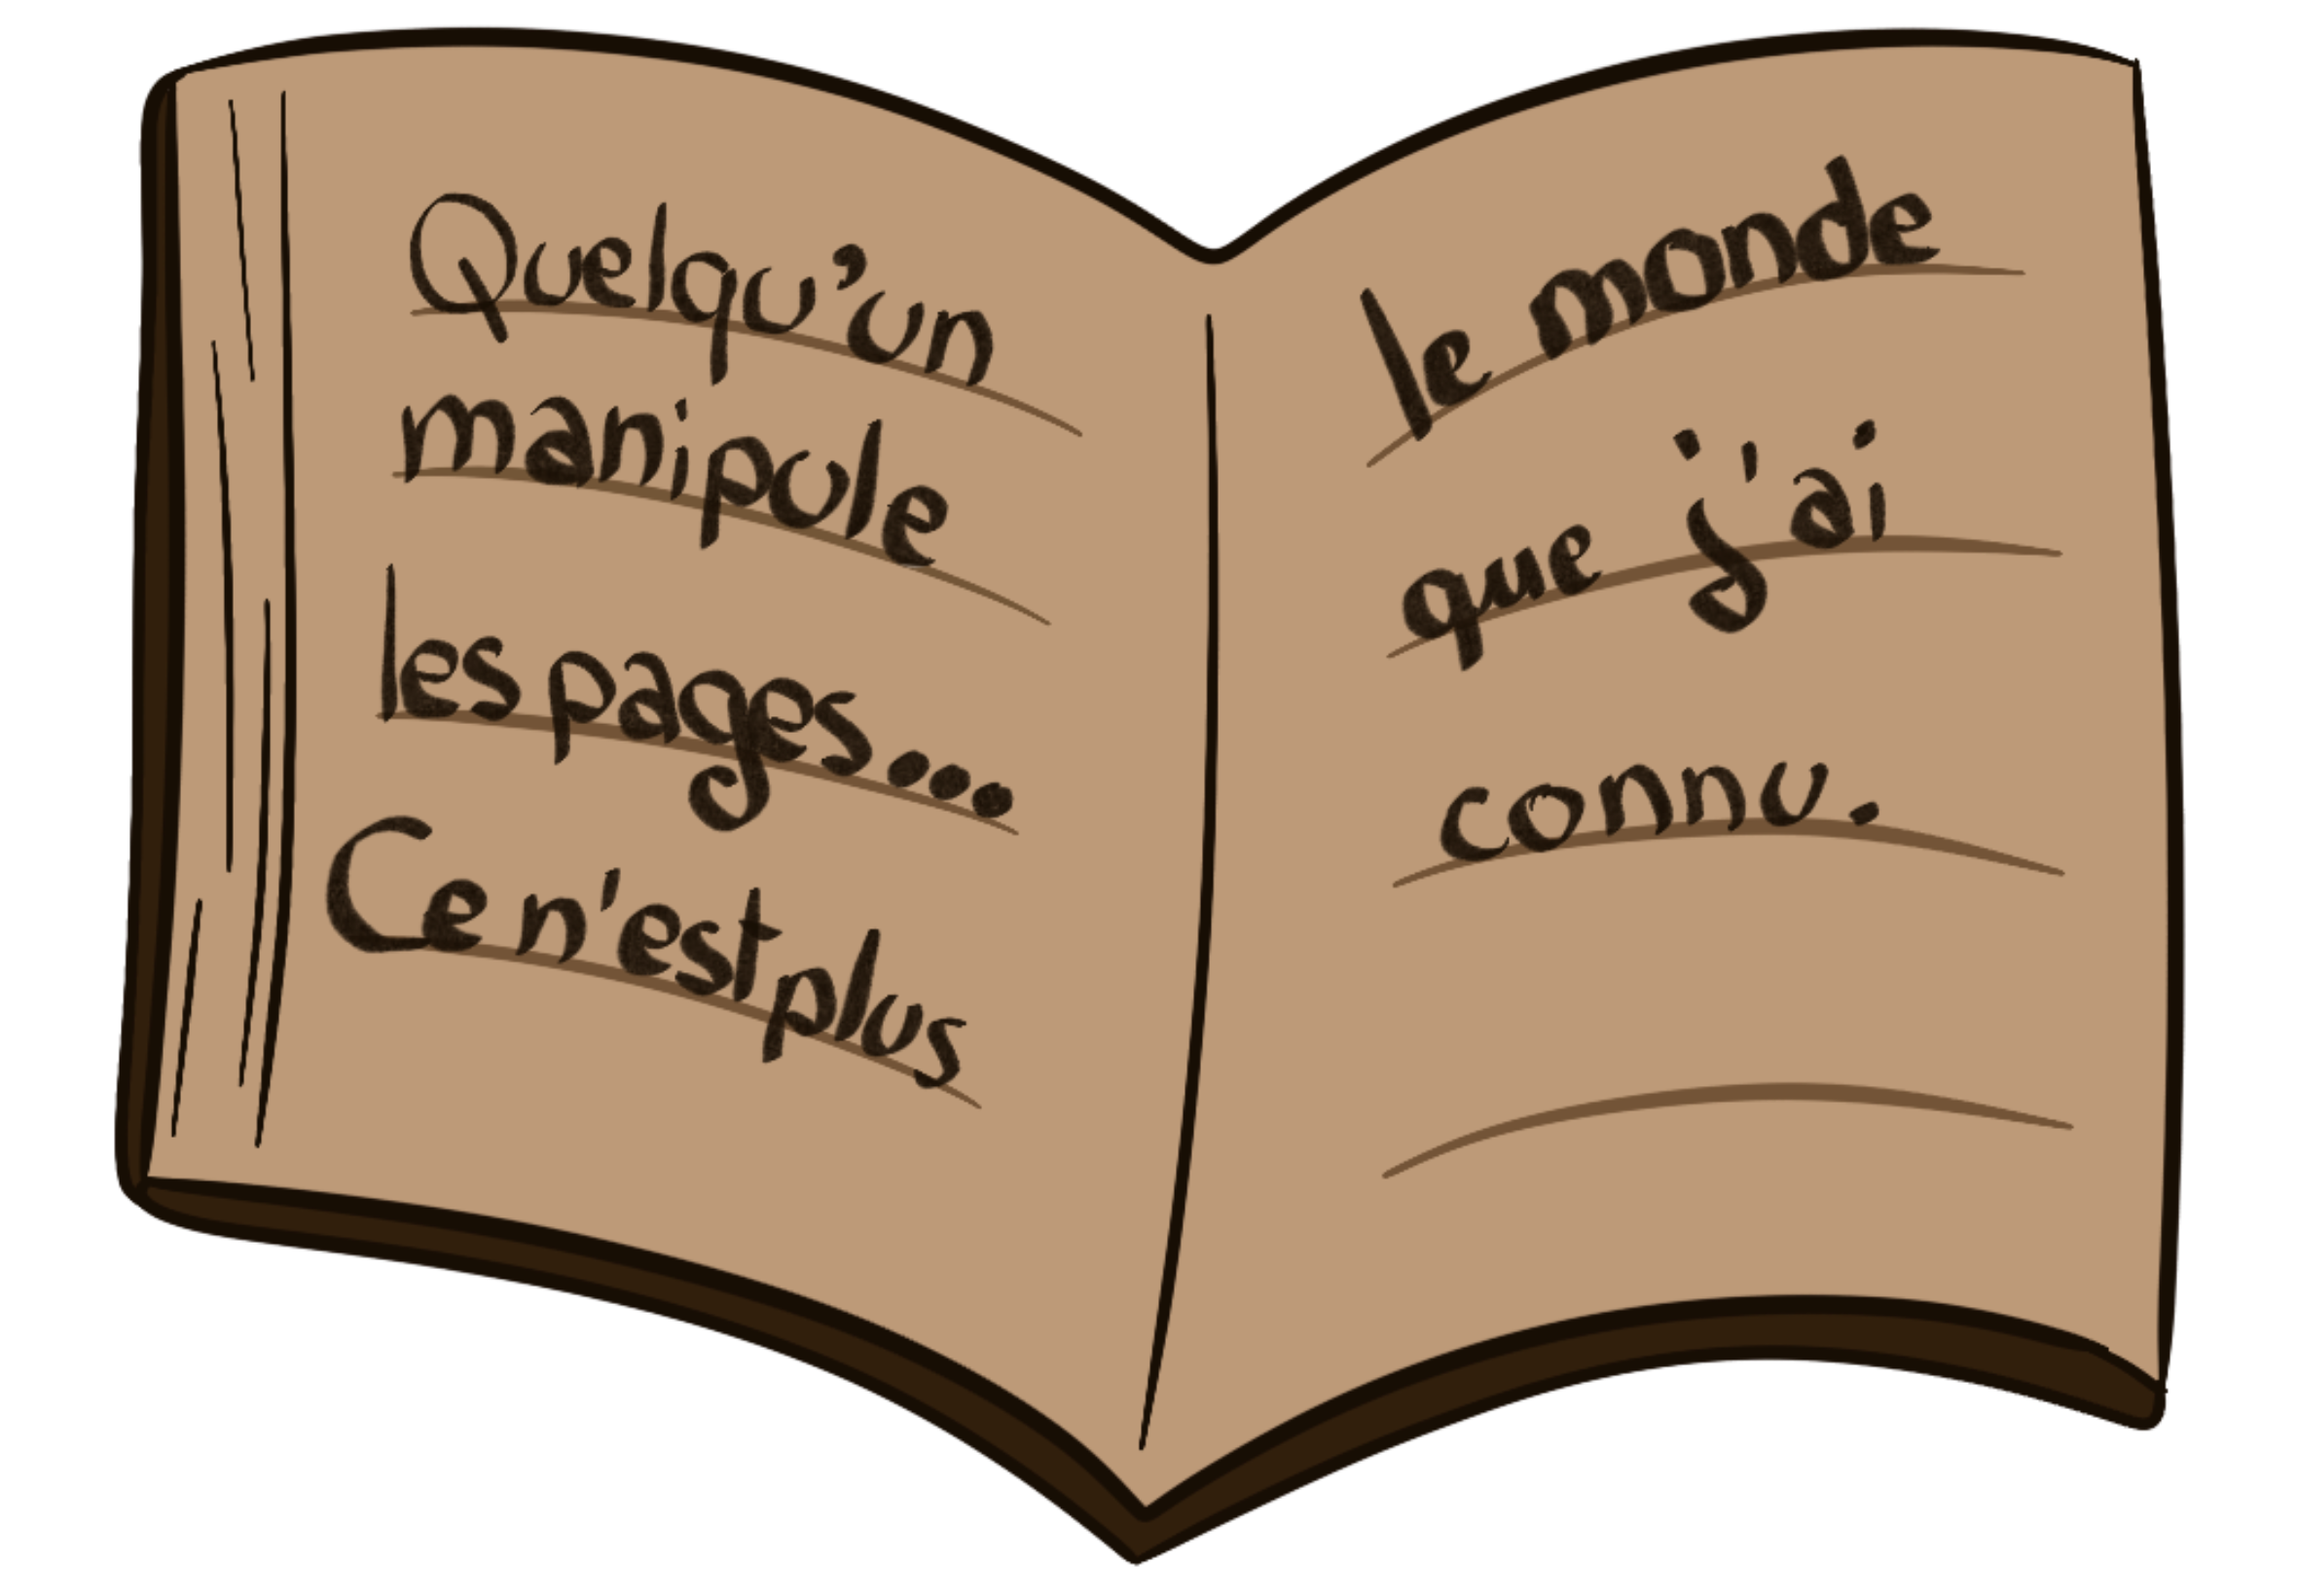 Quelqu'un
manipule
les pages...
Ce n'est plus
le monde
que j'ai
connu.